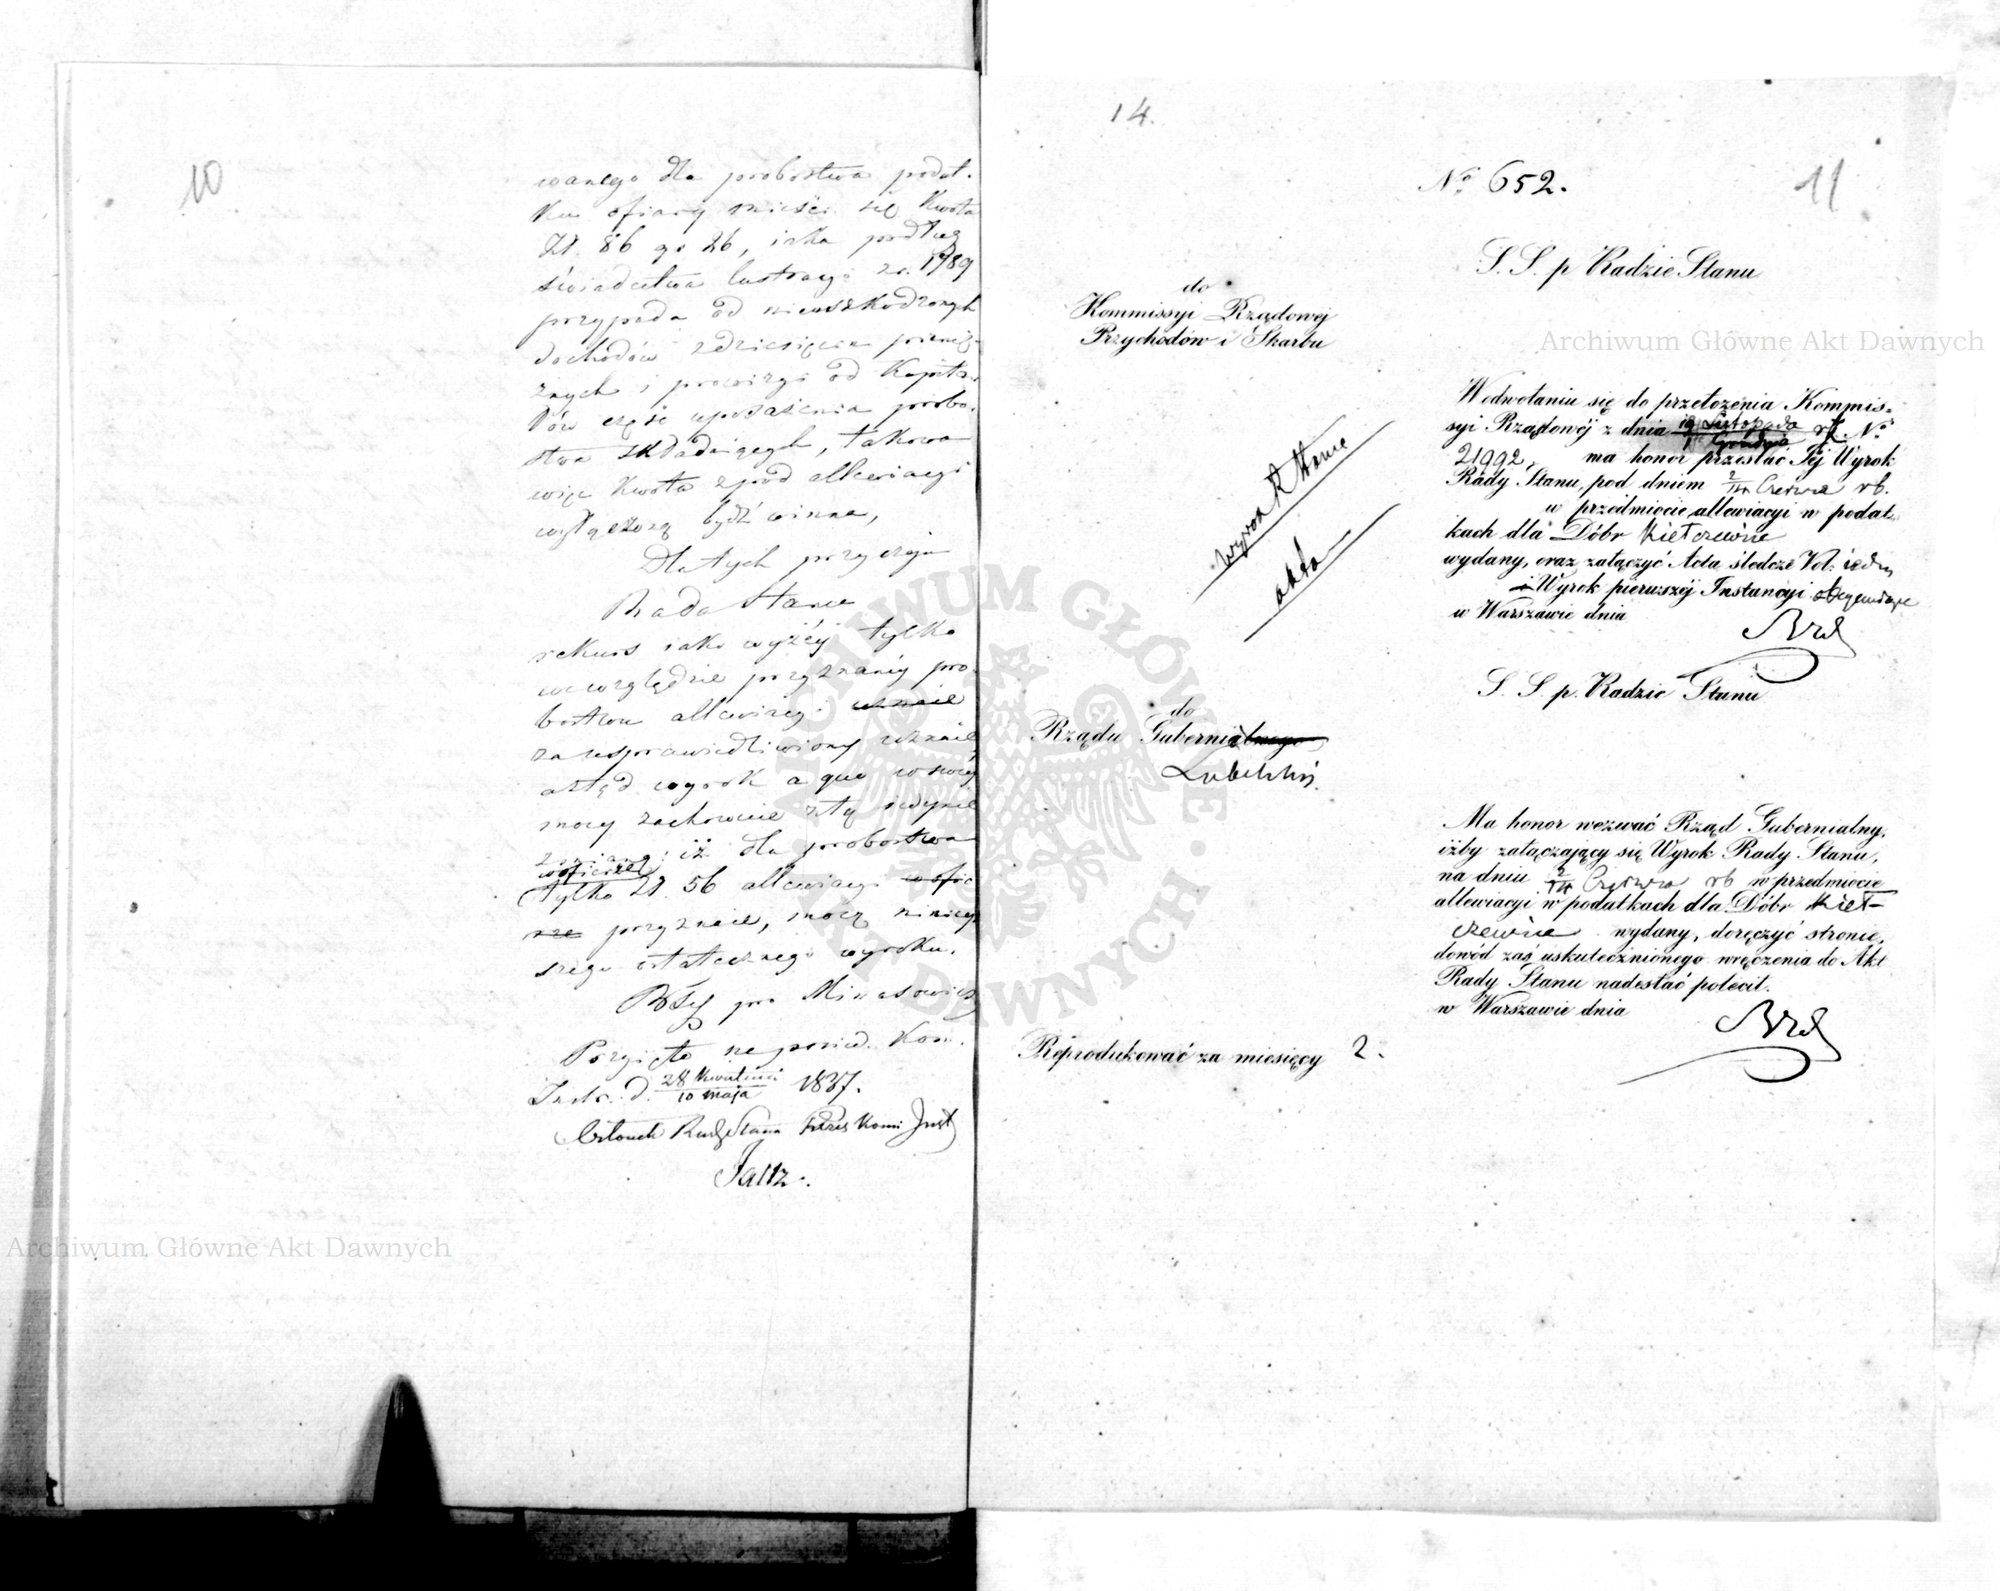 10
wanego dla probostwa podat.
ku ofiary mieści się kwota
Zł. 86 gr 26, iaka podług
świadectwa lustracyi z r. 1789
przypada od nieuszkodzonych
dochodów z dziesięcin pienię-
żnych i prowizyi od Kapita-
łów część uposażenia probo-
stwa składaiących, takowa
więc kwota z pod allewiacyi
wyłączoną bydź winna,
Dla tych przyczyn
Rada Stanu
rekurs iako wyżéy tylko
we względzie przyznanéy pro-
bostwu allewiacyi uznaie
za usprawiedliwiony uznaie
a ztąd wyrok a quo w swéy
mocy zachowuie z tą iedynie
zmianą; iż dla probostwa
w ofierze
tylko Zł. 56 allewiacyi w ofie
rze przyznaie, mocą niniey-
szego ostatecznego wyroku.
pro Minasowicz
Przyięto na posied. Kom.
Instr. d. 28 Kwietnia / 10 maja 1837.
Członek Rady Stanu Kom Inst
14.
11
No 652.
S. S. p Radzie Stanu
do
Kommissyi Rządowej
Przychodów i Skarbu
W odwołaniu się do przełożenia Kommis-
syi Rządowéj z dnia 19 Listopada / 1 Grudnia rz. No
21992, ma honor przesłać Jéj Wyrok
Rady Stanu, pod dniem 2/14 Czerwca rb.
w przedmiocie allewiacyi w podat-
kach dla Dóbr Kiełczewice
wydany, oraz załączyć Acta śledcze Vol: ieden
i Wyrok pierwszéj Instancyi
w Warszawie dnia
wyrok R Stanu
akta
S. S. p. Radzie Stanu
do
Rządu Gubernialnego
Lubelski.
Ma honor wezwać Rząd Gubernialny,
iżby załączający się Wyrok Rady Stanu,
na dniu 2/14 Czerwca rb w przedmiocie
allewiacyi w podatkach dla Dóbr Kieł-
czewice wydany, doręczyć stronie,
dowód zaś uskutecznionego wręczenia do Akt
Rady Stanu nadesłać polecił.
w Warszawie dnia
Reprodukować za miesięcy 2.
Archiwum Główne Akt Dawnych
Archiwum Główne Akt Dawnych
ARCHIWUM GŁÓWNE AKT DAWNYCH